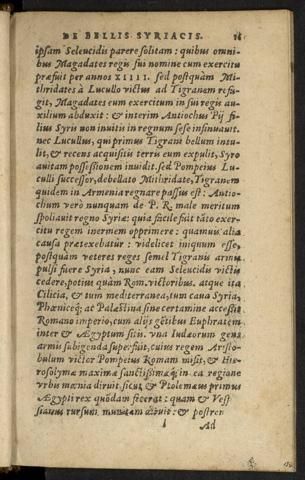 DE BELLIS SYRIACIS. 16
ipsam Seleucidis parere solitam: quibus omni-
bus Magadates regis sui nomine cum exercitu
præfuit per annos XIIII. sed postquàm Mi-
thridates à Lucullo victus ad Tigranem refu-
git, Magadates eum exercitum in sui regis au-
xilium abduxit: & interim Antiochus Pij fi-
lius Syris non inuitis in regnum sese insinuauit.
nec Lucullus, qui primus Tigrani bellum intu-
lit, & recens acquisitis terris eum expulit, Syro
auitam possessionem inuidit. sed Pompeius Lu-
culli successor, debellato Mithridate, Tigranem
quidem in Armenia regnare passus est: Antio-
chum verò nunquam de P. R. male meritum
spoliauit regno Syriæ: quia facile fuit tãto exer-
citu regem inermem opprimere: quamuis alia
causa prætexebatur: videlicet iniquum esse,
postquàm veteres reges semel Tigranis armis
pulsi fuere Syria, nunc eam Seleucidis victis
cedere, potius quàm Rom. victoribus. atque ita
Cilicia, & tum mediterranea, tum caua Syria,
Phœnicеq; ac Palæstina sine certamine accessit
Romano imperio, cum alijs gẽtibus Euphraten
inter & Ægyptum sitis. vna Iudæorum gens
armis subigenda superfuit, cuius regem Aristo-
bulum victor Pompeius Romam misit, & Hie-
rosolymæ maximæ sanctissimæq; in ea regione
vrbis mœnia diruit. sicut & Ptolemæus primus
Ægypti rex quõdam fecerat: quam & Vesp
sianus rursum munitam diruit: & postren
i Ad